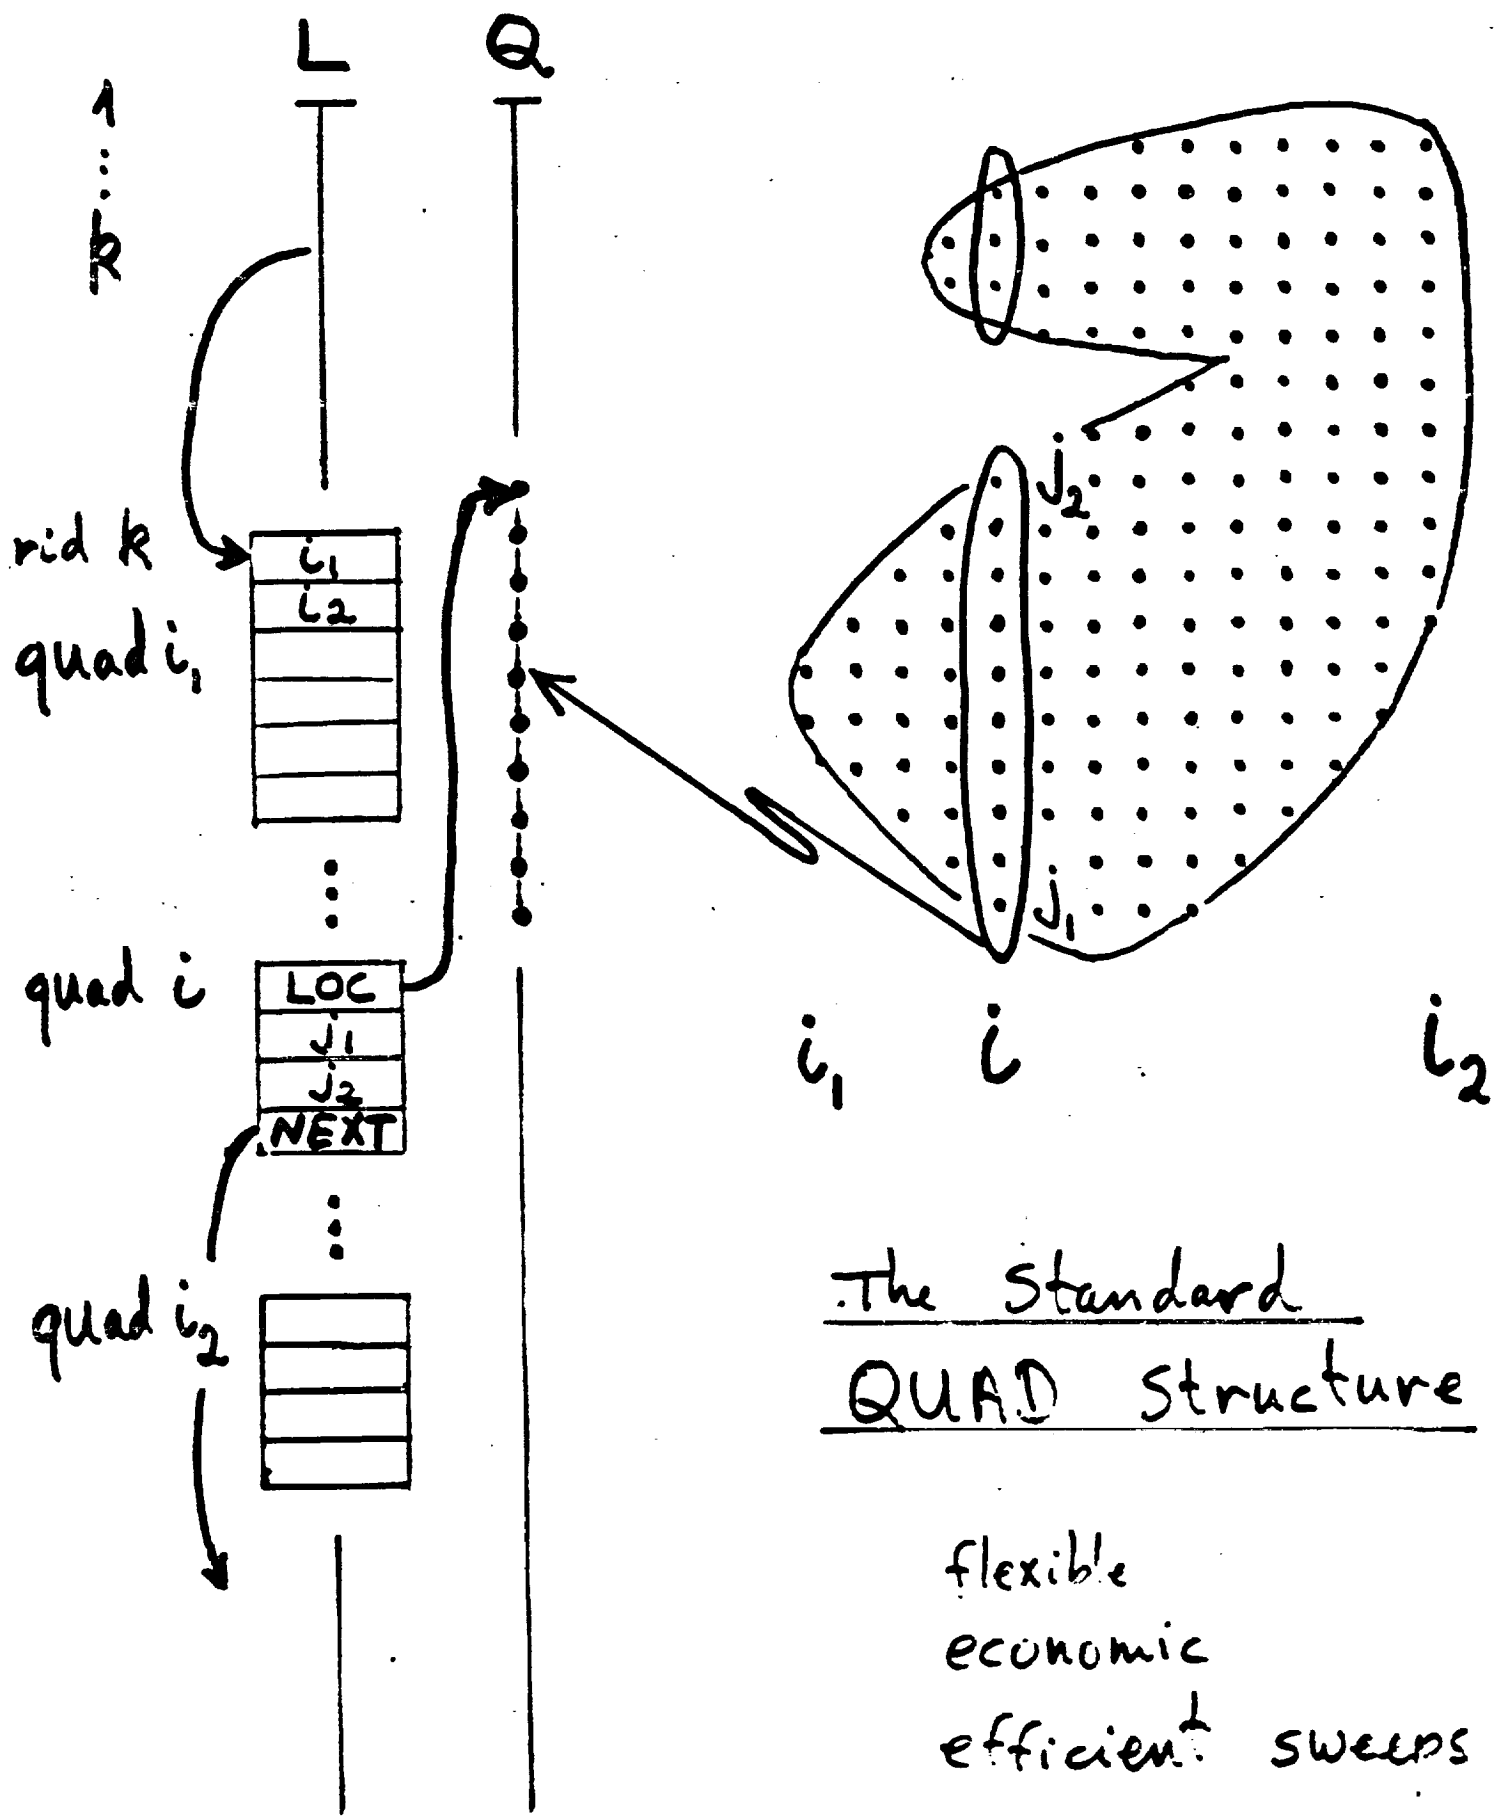 L Q
1
k
rid k
i1
i2
quad i1
j2
j1
quad i
LOC
j1
j2
NEXT
i1 i i2
quad i2
The Standard
QUAD Structure
flexible
economic
efficient sweeps